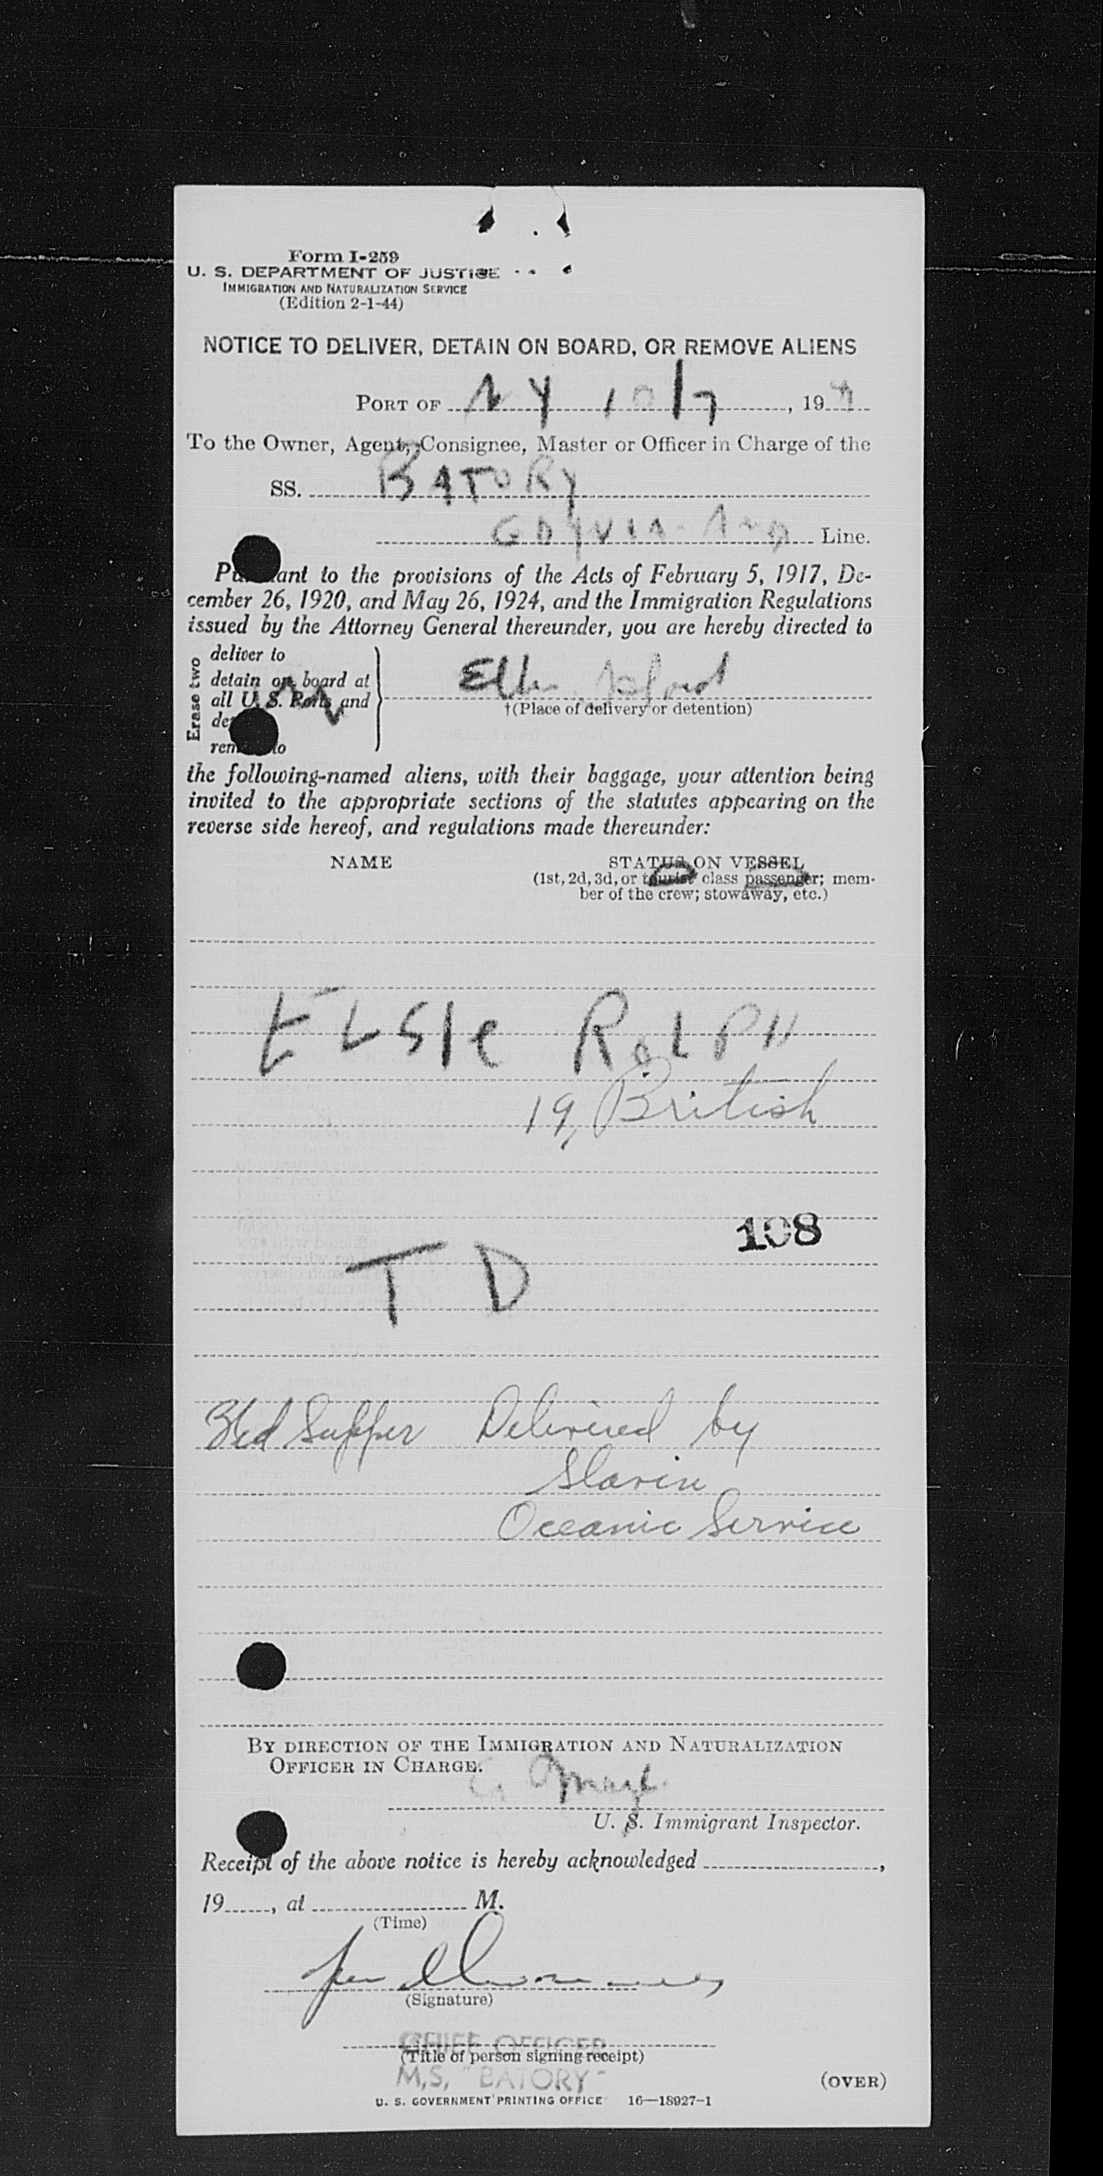 Form I-259
U. S. DEPARTMENT OF JUSTICE
IMMIGRATION AND NATURALIZATION SERVICE
(Edition 2-1-44)
NOTICE TO DELIVER, DETAIN ON BOARD, OR REMOVE ALIENS
PORT OF NY 10/7, 19
To the Owner, Agent, Consignee, Master or Officer in Charge of the
SS. BATORY
Line.
Pursuant to the provisions of the Acts of February 5, 1917, De-
cember 26, 1920, and May 26, 1924, and the Immigration Regulations
issued by the Attorney General thereunder, you are hereby directed to
Erase two
deliver to
detain on board at
all U. S. Ports and
remove to
Ellis Island
†(Place of delivery or detention)
the following-named aliens, with their baggage, your attention being
invited to the appropriate sections of the statutes appearing on the
reverse side hereof, and regulations made thereunder:
NAME STATUS ON VESSEL
(1st, 2d, 3d, or tourist class passenger; mem-
ber of the crew; stowaway, etc.)
ELSIE RALPH
19, British
108
T D
Supper Delivered by
Slavin
Oceanic Service
BY DIRECTION OF THE IMMIGRATION AND NATURALIZATION
OFFICER IN CHARGE.
U. S. Immigrant Inspector.
Receipt of the above notice is hereby acknowledged ,
19 , at M.
(Time)
(Signature)
CHIEF OFFICER
(Title of person signing receipt)
M,S, "BATORY"
(OVER)
U. S. GOVERNMENT PRINTING OFFICE 16—18927-1